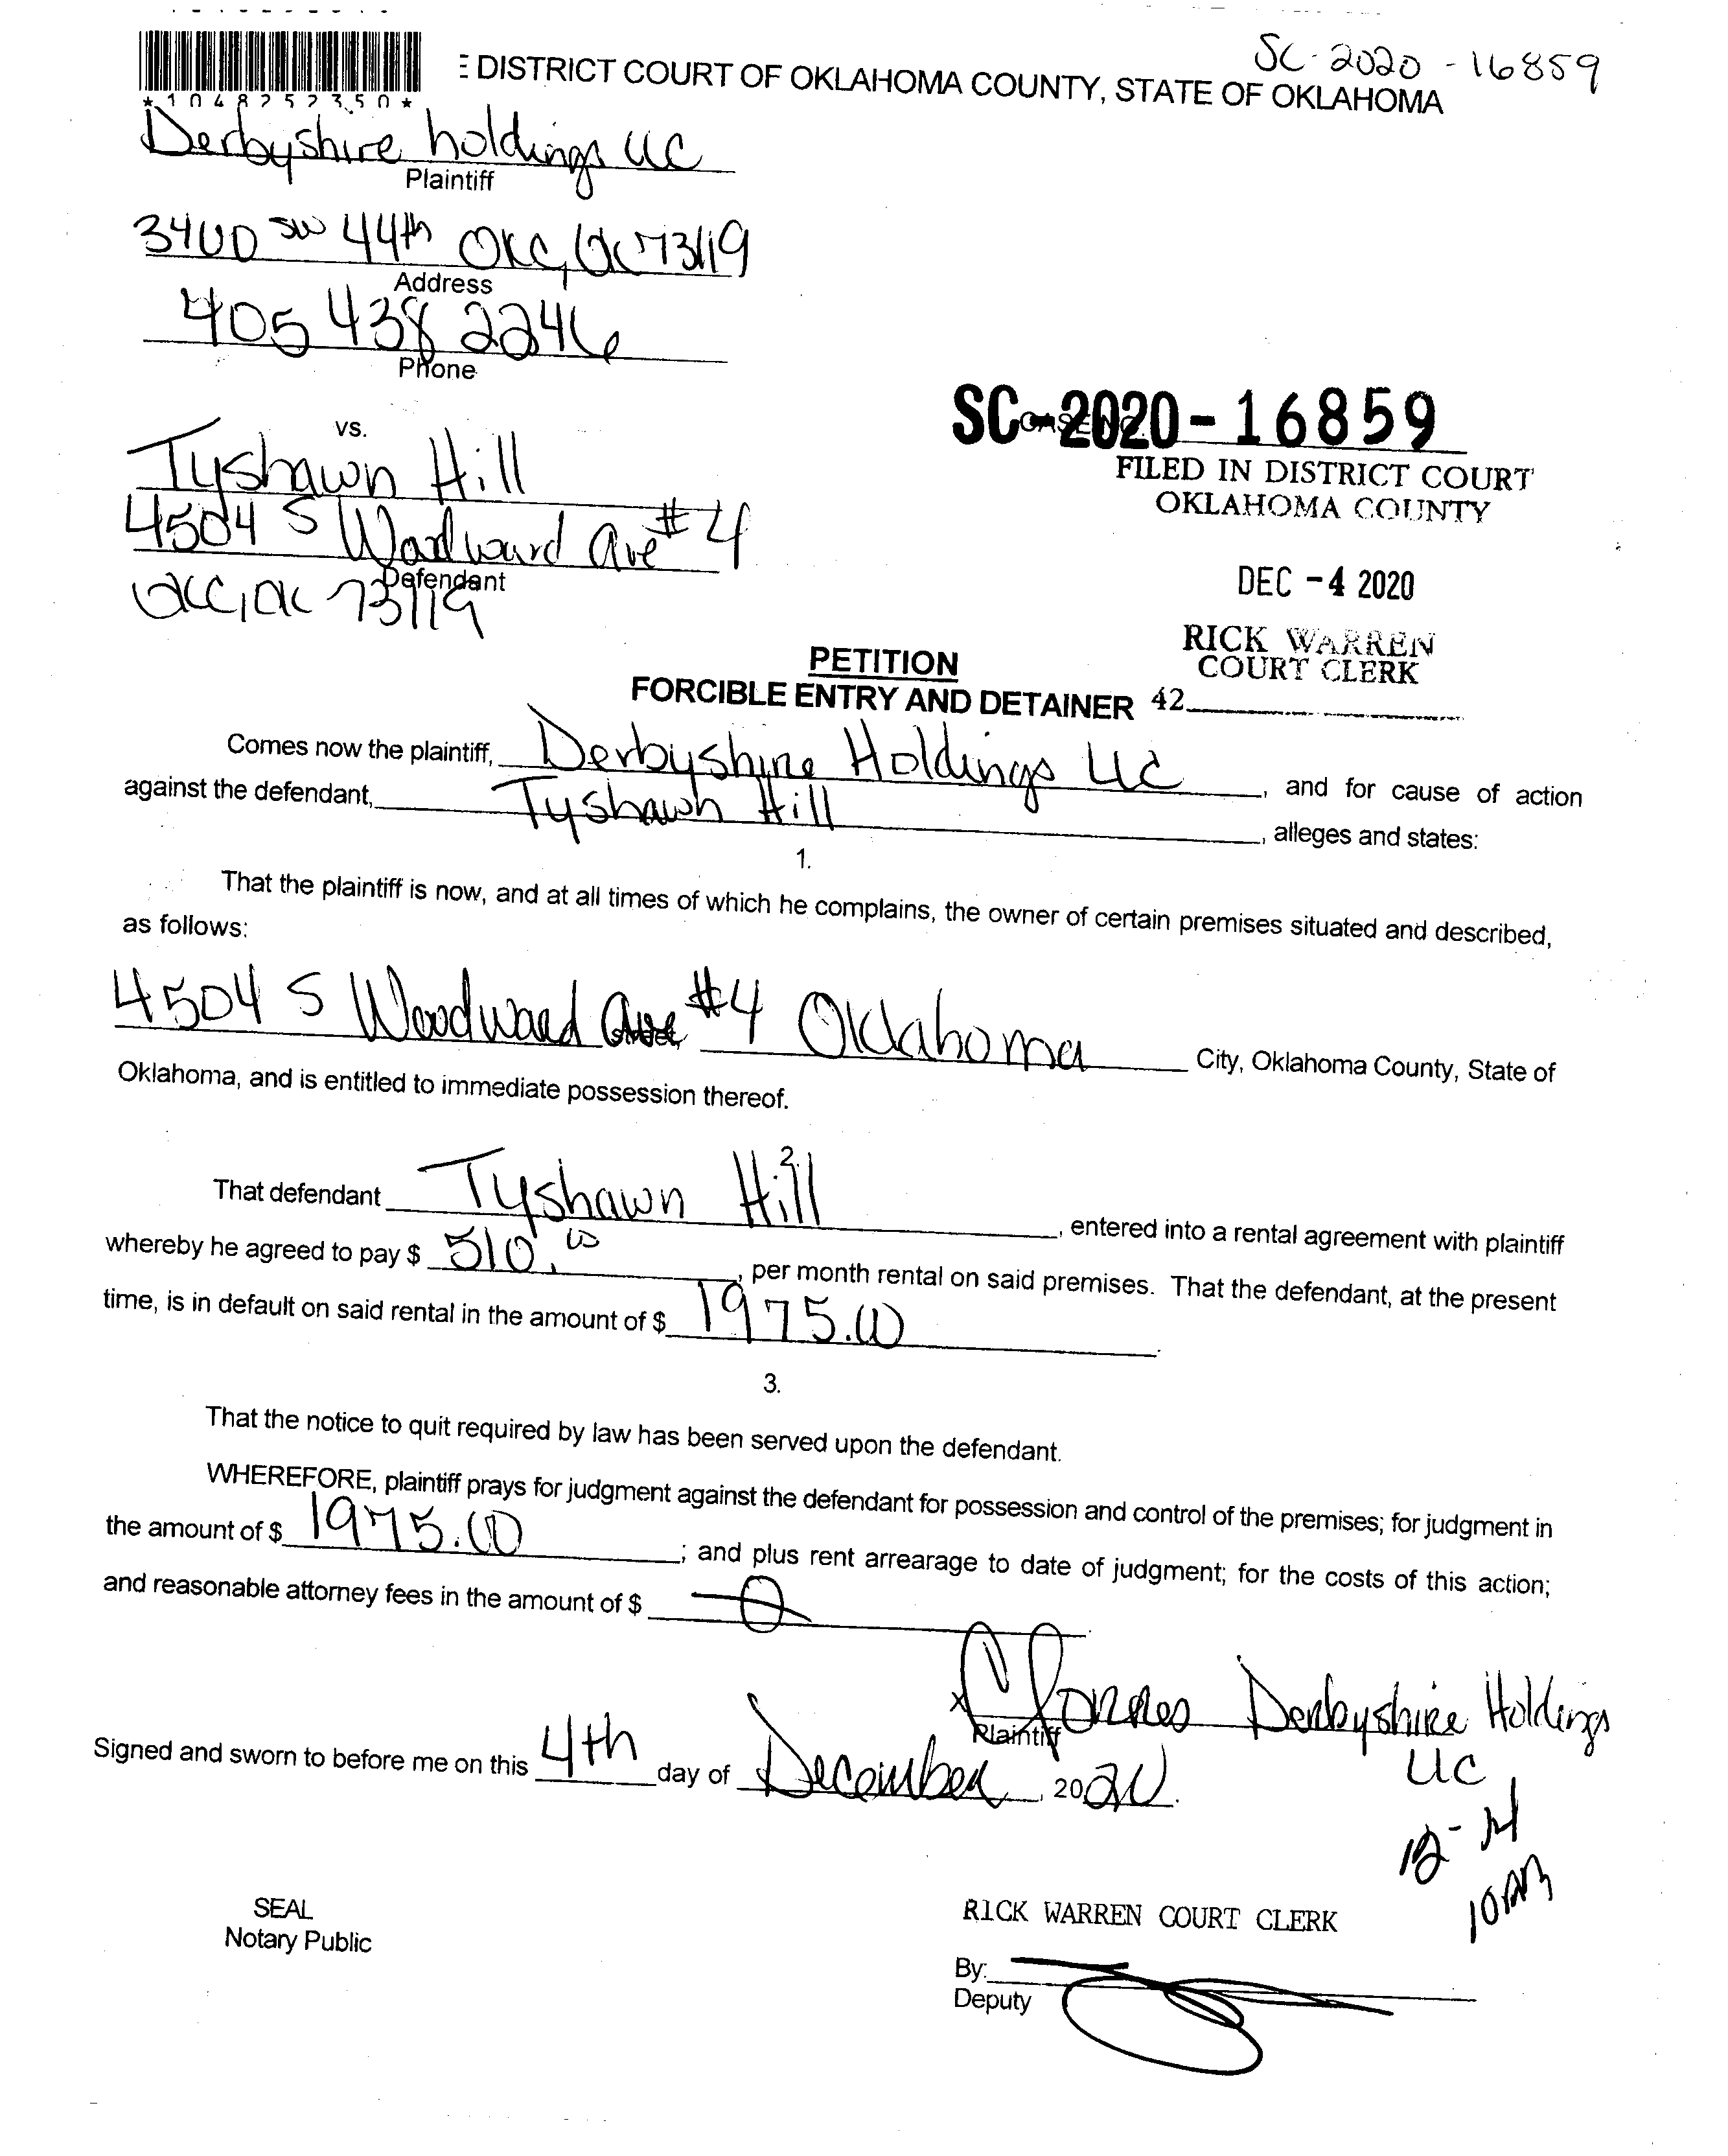 SC-2020-16859
E DISTRICT COURT OF OKLAHOMA COUNTY, STATE OF OKLAHOMA
*1048252350*
Derbyshire holdings LLC
Plaintiff
3400 SW 44th OKC, OK 73119
Address
405 438 2246
Phone
vs.
SC-2020-16859
FILED IN DISTRICT COURT
OKLAHOMA COUNTY
Tyshawn Hill
4504 S Woodward Ave #4
Defendant
OKC, OK 73119
DEC -4 2020
RICK WARREN
COURT CLERK
42
PETITION
FORCIBLE ENTRY AND DETAINER
Comes now the plaintiff, Derbyshire Holdings LLC, and for cause of action
against the defendant, Tyshawn Hill, alleges and states:
1.
That the plaintiff is now, and at all times of which he complains, the owner of certain premises situated and described,
as follows:
4504 S Woodward Ave #4 Oklahoma City, Oklahoma County, State of
Oklahoma, and is entitled to immediate possession thereof.
2.
That defendant Tyshawn Hill, entered into a rental agreement with plaintiff
whereby he agreed to pay $ 510.00, per month rental on said premises. That the defendant, at the present
time, is in default on said rental in the amount of $ 1975.00.
3.
That the notice to quit required by law has been served upon the defendant.
WHEREFORE, plaintiff prays for judgment against the defendant for possession and control of the premises; for judgment in
the amount of $ 1975.00; and plus rent arrearage to date of judgment; for the costs of this action;
and reasonable attorney fees in the amount of $ 0.
Derbyshire Holdings
LLC
Plaintiff
Signed and sworn to before me on this 4th day of December, 2020.
10AM
SEAL
Notary Public
RICK WARREN COURT CLERK
By:
Deputy